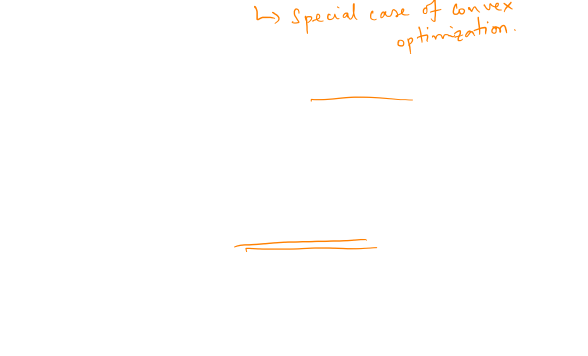 ↳ Special case of convex
optimization.